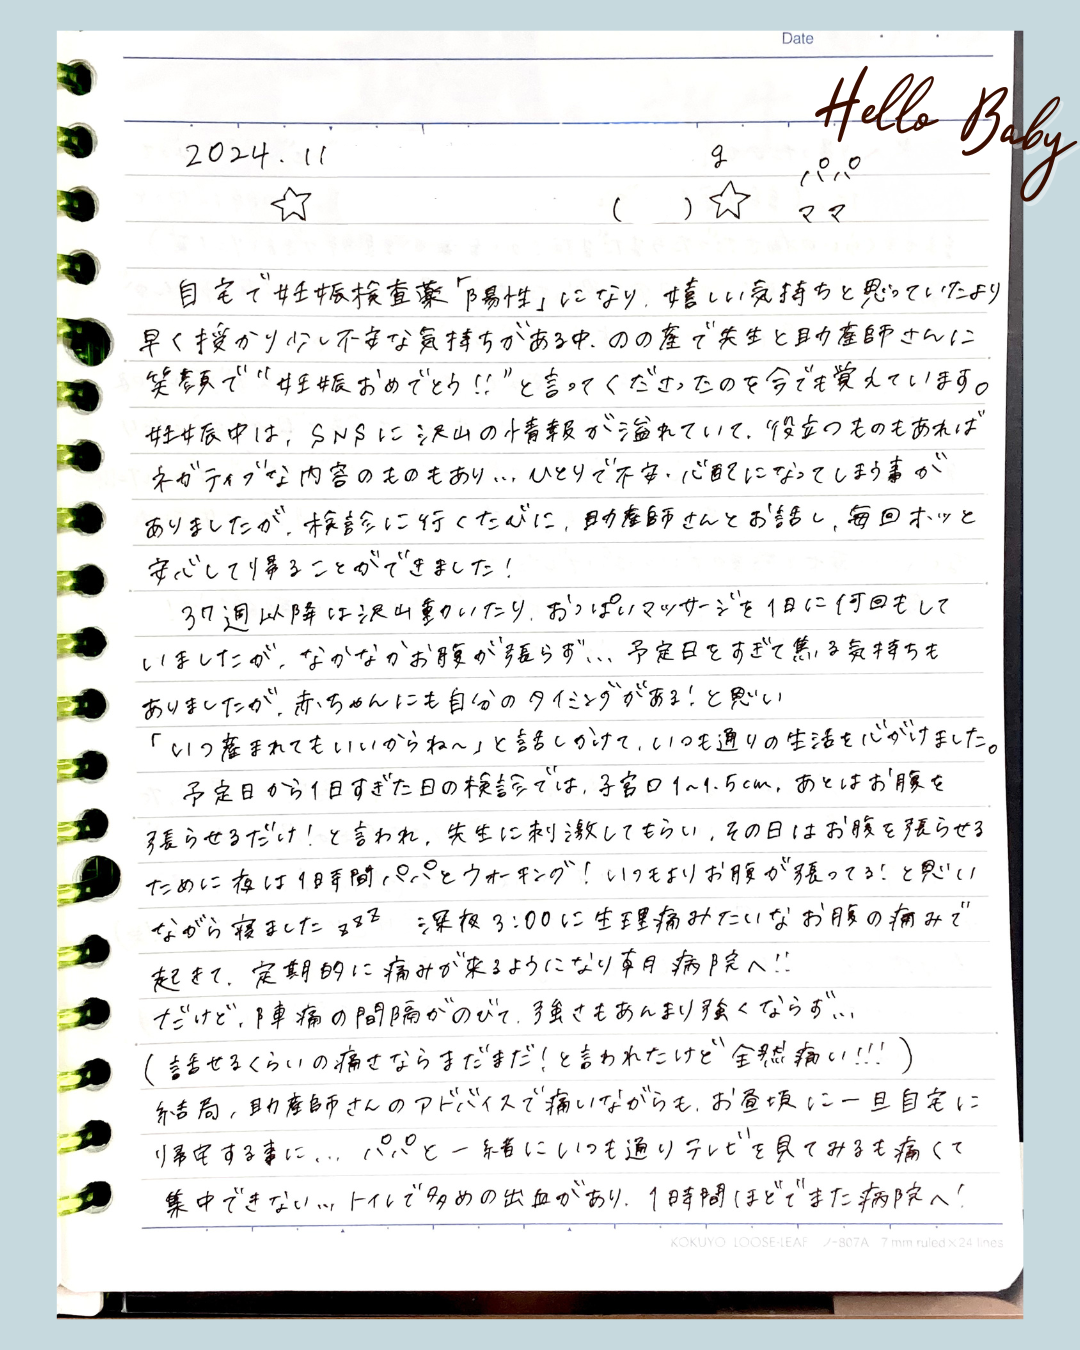 Date
Hello Baby
2024.11 g パパ
☆ ( ) ☆ ママ
自宅で妊娠検査薬「陽性」になり、嬉しい気持ちと思っていたより
早く授かり少し不安な気持ちがある中、のの産で先生と助産師さんに
笑顔で“妊娠おめでとう!!”と言ってくださったのを今でも覚えています。
妊娠中は、SNSに沢山の情報が溢れていて、役立つものもあれば
ネガティブな内容のものもあり... ひとりで不安・心配になってしまう事が
ありましたが、検診に行くたびに、助産師さんとお話し、毎回ホッと
安心して帰ることができました!
37週以降は沢山動いたり、おっぱいマッサージを1日に何回もして
いましたが、なかなかお腹が張らず... 予定日をすぎて焦る気持ちも
ありましたが、赤ちゃんにも自分のタイミングがある!と思い
「いつ産まれてもいいからね〜」と話しかけて、いつも通りの生活を心がけました。
予定日から1日すぎた日の検診では、子宮口1〜1.5cm、あとはお腹を
張らせるだけ!と言われ、先生に刺激してもらい、その日はお腹を張らせる
ために夜は1時間パパとウォーキング!いつもよりお腹が張ってる!と思い
ながら寝ました zzz 深夜3:00に生理痛みたいなお腹の痛みで
起きて、定期的に痛みが来るようになり朝月 病院へ!!
だけど、陣痛の間隔がのびて、強さもあんまり強くならず...
(話せるくらいの痛さならまだまだ!と言われたけど全然痛い!!!)
結局、助産師さんのアドバイスで痛いながらも、お昼頃に一旦自宅に
帰宅する事に... パパと一緒にいつも通りテレビを見てみるも痛くて
集中できない... トイレで多めの出血があり、1時間ほどでまた病院へ!
KOKUYO LOOSE-LEAF ノ-807A 7 mm ruled×24 lines